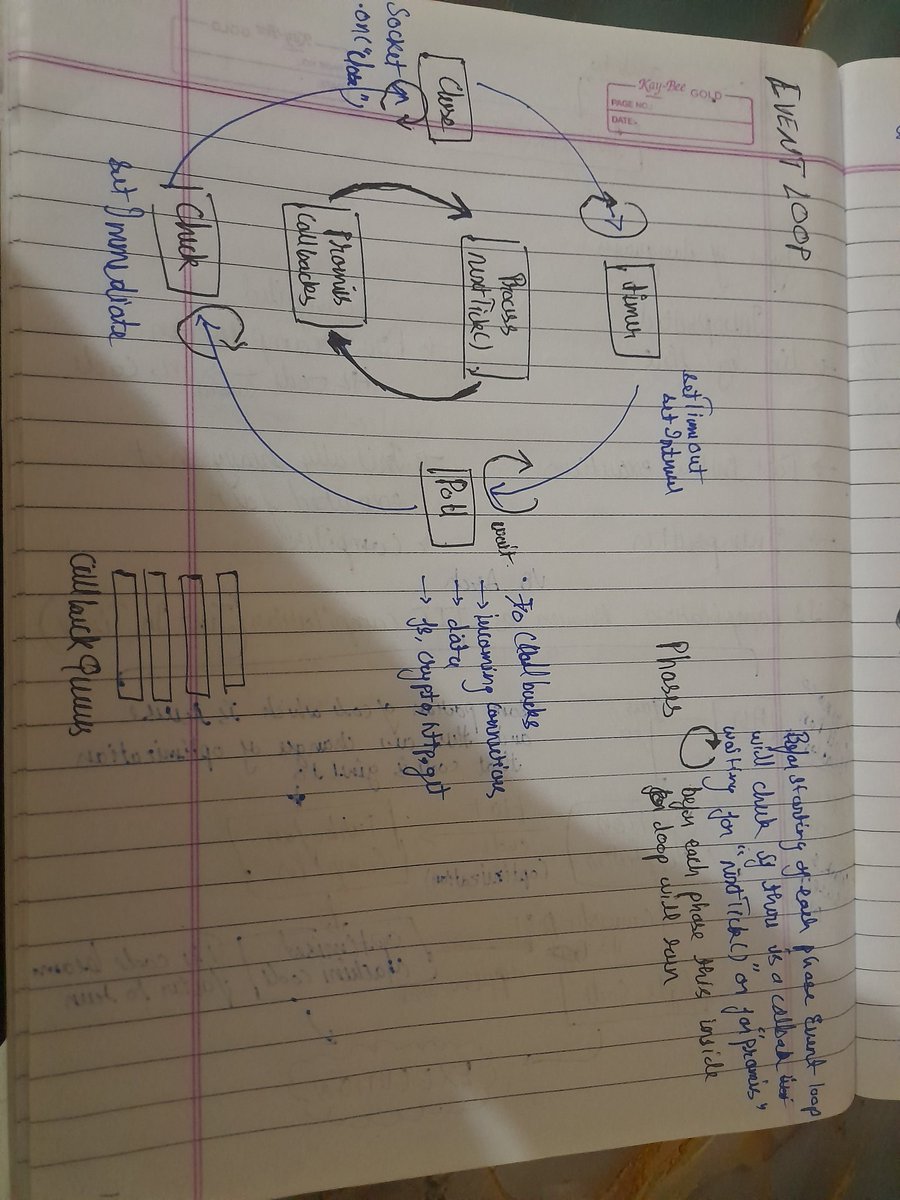 EVENT LOOP
Kay-Bee GOLD
PAGE NO.:
DATE:
timer
setTimeout
setInterval
Process
nextTick()
Promis
Callbacks
Close
Socket.on
.on("close")
Check
set Immediate
Poll
wait
• Io Callbacks
→ incoming connections
→ data
→ fs, crypto, http.get
Callback Queues
Phases
starting of each phase Event loop
will check if there is a callback
waiting for "nextTick()" or for "promis"
before each phase this inside
loop will run